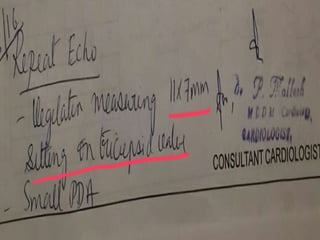 Repeat Echo
- Vegetation measuring 11x7mm
sitting on tricuspid valve
- Small PDA
Dr. P.
CARDIOLOGIST,
CONSULTANT CARDIOLOGIST